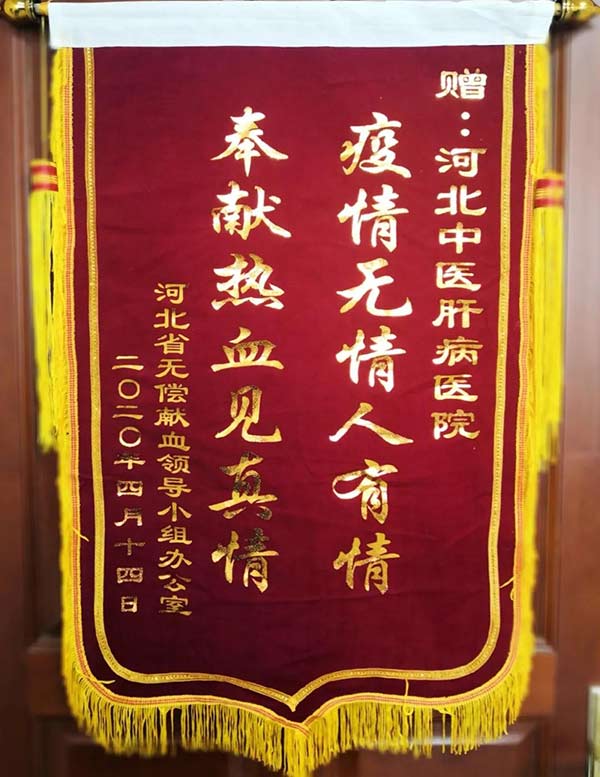 赠：河北中医肝病医院
疫情无情人有情
奉献热血见真情
河北省无偿献血领导小组办公室
二〇二〇年四月十四日